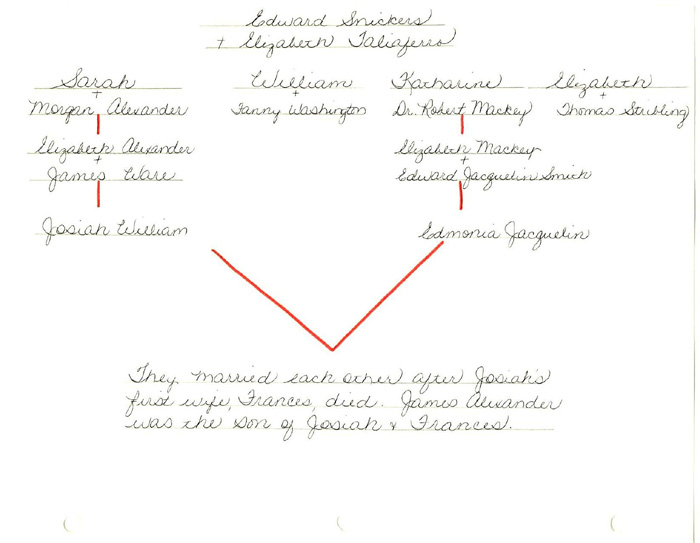 Edward Snickers
+ Elizabeth Taliaferro
Sarah William Katharine Elizabeth
+ + + +
Morgan Alexander Fanny Washington Dr. Robert Mackey Thomas Stribling
Elizabeth Alexander Elizabeth Mackey
+ +
James Ware Edward Jacquelin Smith
Josiah William Edmonia Jacquelin
They married each other after Josiah's
first wife, Frances, died. James Alexander
was the son of Josiah & Frances.